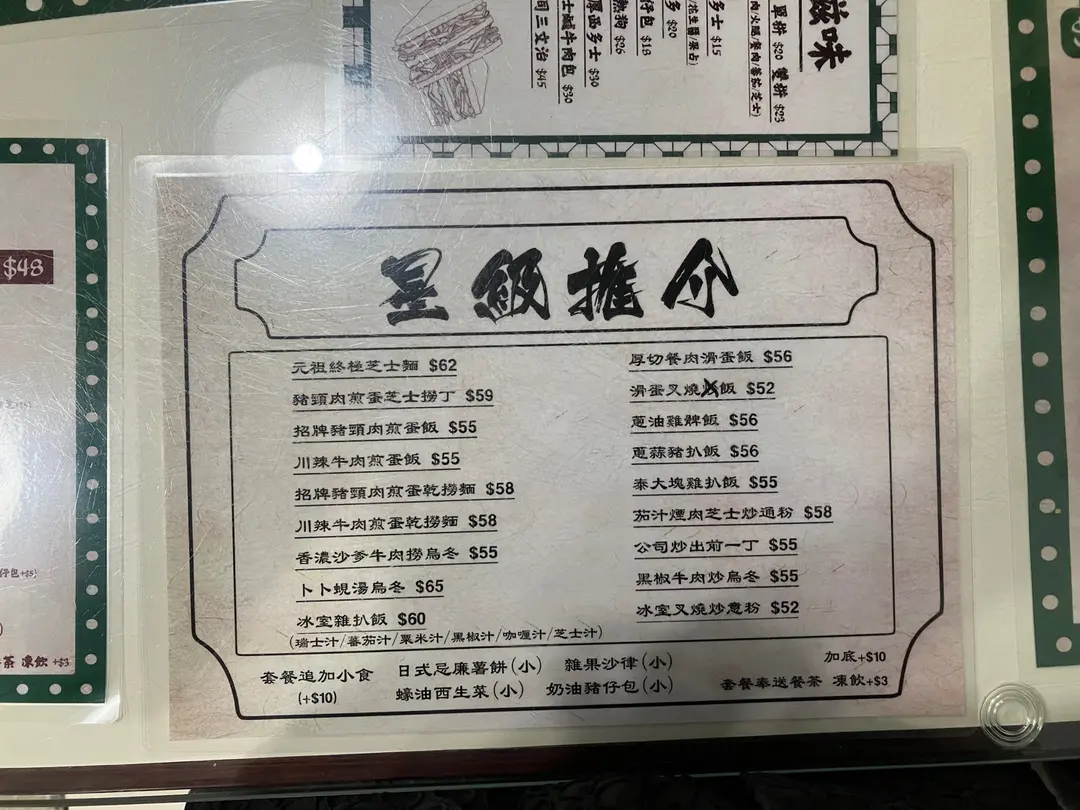 滋味
單拼 $20 雙拼 $23
多士 $15
多 $20
仔包 $18
熱狗 $26
厚西多士 $30
士鹹牛肉包 $30
司三文治 $45
$48
星級推介
元祖終極芝士麵 $62
豬頸肉煎蛋芝士撈丁 $59
招牌豬頸肉煎蛋飯 $55
川辣牛肉煎蛋飯 $55
招牌豬頸肉煎蛋乾撈麵 $58
川辣牛肉煎蛋乾撈麵 $58
香濃沙爹牛肉撈烏冬 $55
卜卜蜆湯烏冬 $65
冰室雜扒飯 $60
(瑞士汁/蕃茄汁/粟米汁/黑椒汁/咖喱汁/芝士汁)
厚切餐肉滑蛋飯 $56
滑蛋叉燒飯 $52
蔥油雞髀飯 $56
蔥蒜豬扒飯 $56
泰大塊雞扒飯 $55
茄汁煙肉芝士炒通粉 $58
公司炒出前一丁 $55
黑椒牛肉炒烏冬 $55
冰室叉燒炒意粉 $52
套餐追加小食
(+$10)
日式忌廉薯餅(小) 雜果沙律(小)
蠔油西生菜(小) 奶油豬仔包(小)
加底+$10
套餐奉送餐茶 凍飲+$3
仔包+$5)
茶 凍飲 +$3